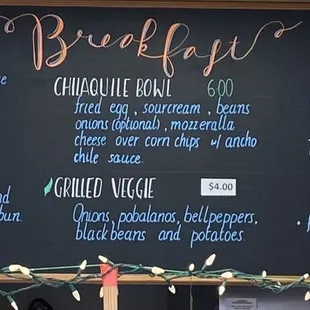 Breakfast
CHIAQUILE BOWL 6.00
fried egg, sourcream, beans
onions (optional), mozzeralla
cheese over corn chips w/ ancho
chile sauce.
GRILLED VEGGIE $4.00
Onions, pobalanos, bellpeppers,
black beans and potatoes.
bun.